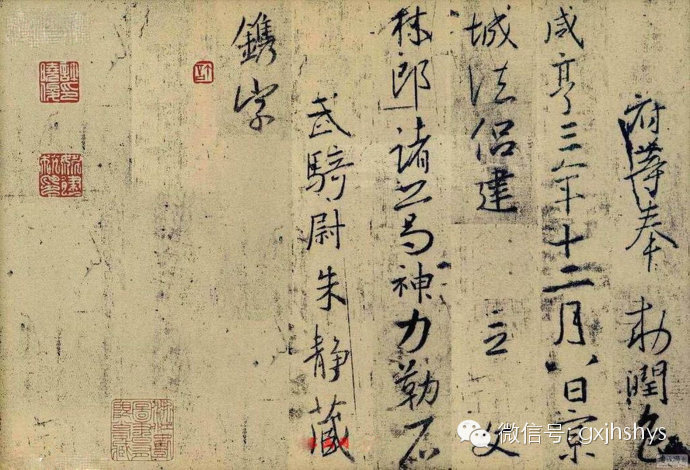 府等奉 勅潤色
咸亨三年十二月八日京
城法侶建 立 文
林郎諸葛神力勒石
武騎尉朱靜藏
鐫字
微信号: gxjhshys